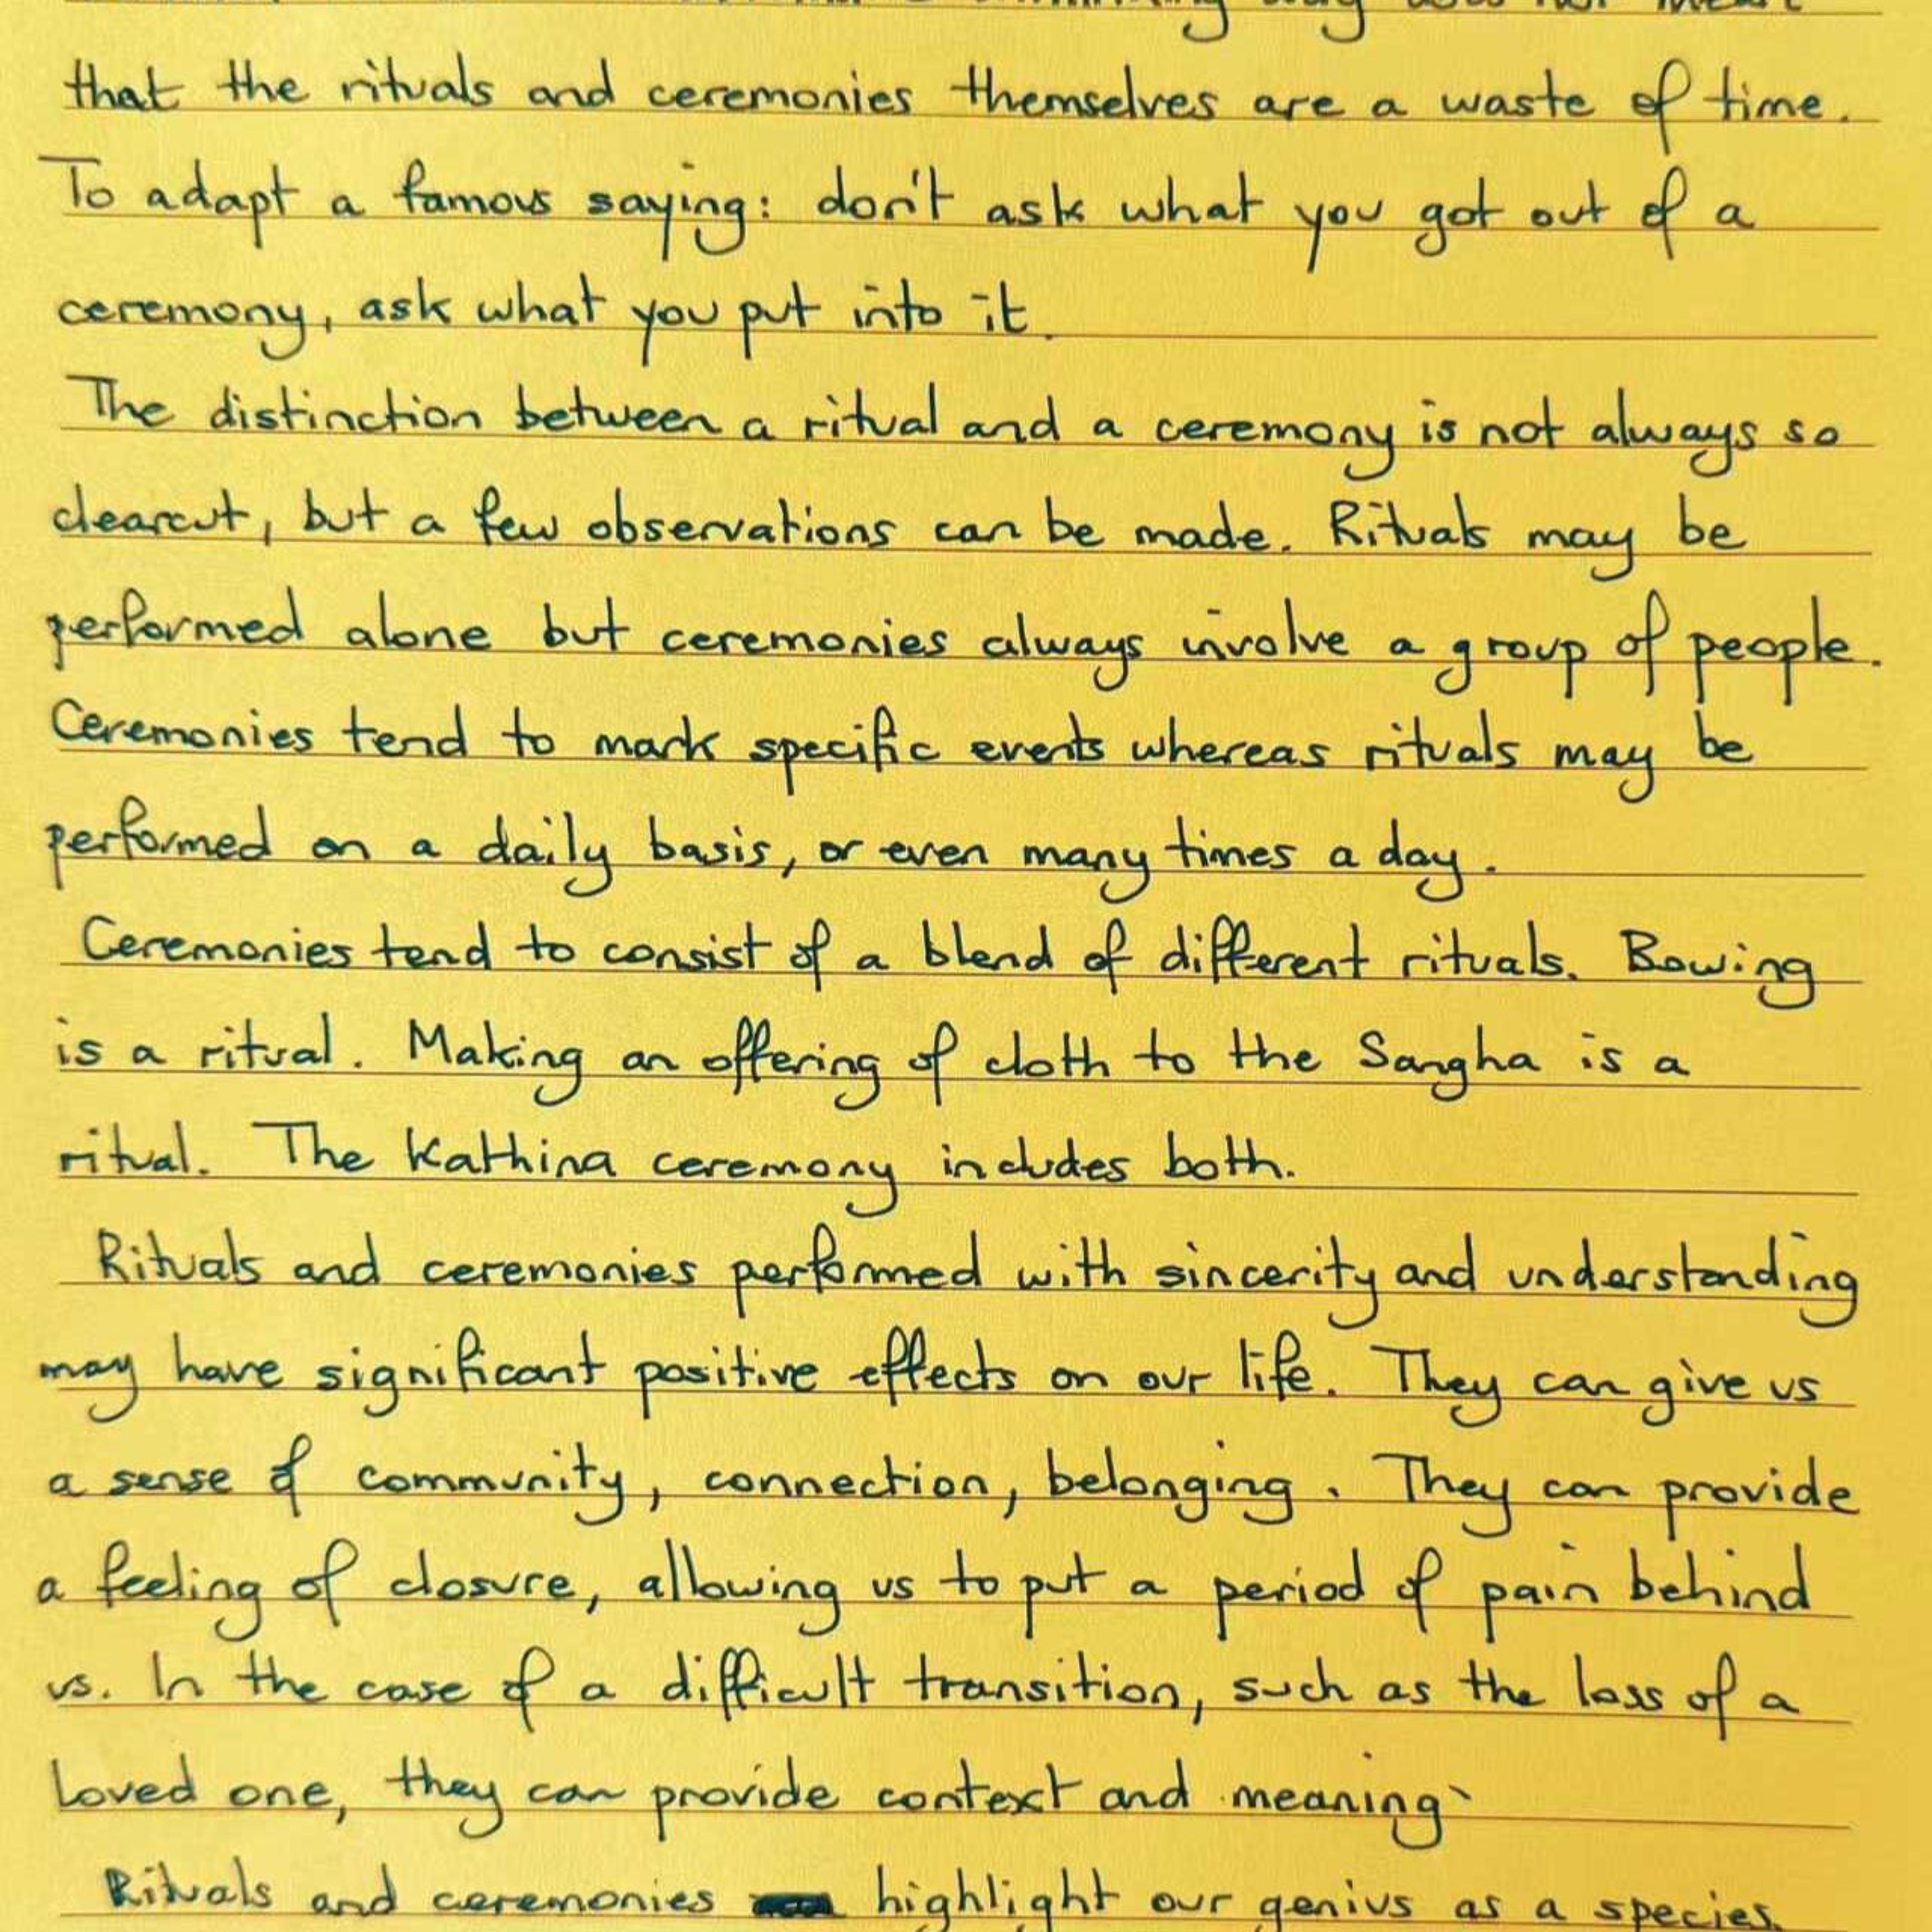 way does not mean
that the rituals and ceremonies themselves are a waste of time.
To adapt a famous saying: don't ask what you got out of a
ceremony, ask what you put into it.
The distinction between a ritual and a ceremony is not always so
clearcut, but a few observations can be made. Rituals may be
performed alone but ceremonies always involve a group of people.
Ceremonies tend to mark specific events whereas rituals may be
performed on a daily basis, or even many times a day.
Ceremonies tend to consist of a blend of different rituals. Bowing
is a ritual. Making an offering of cloth to the Sangha is a
ritual. The Kathina ceremony includes both.
Rituals and ceremonies performed with sincerity and understanding
may have significant positive effects on our life. They can give us
a sense of community, connection, belonging. They can provide
a feeling of closure, allowing us to put a period of pain behind
us. In the case of a difficult transition, such as the loss of a
loved one, they can provide context and meaning.
Rituals and ceremonies highlight our genius as a species.